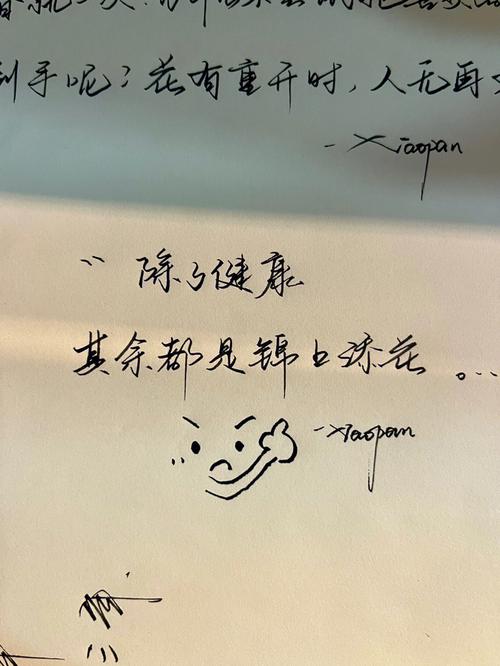 到手呢？花有重开时，人无再
-Xiaopan
“ 除了健康
其余都是锦上添花 。...
-Xiaopan